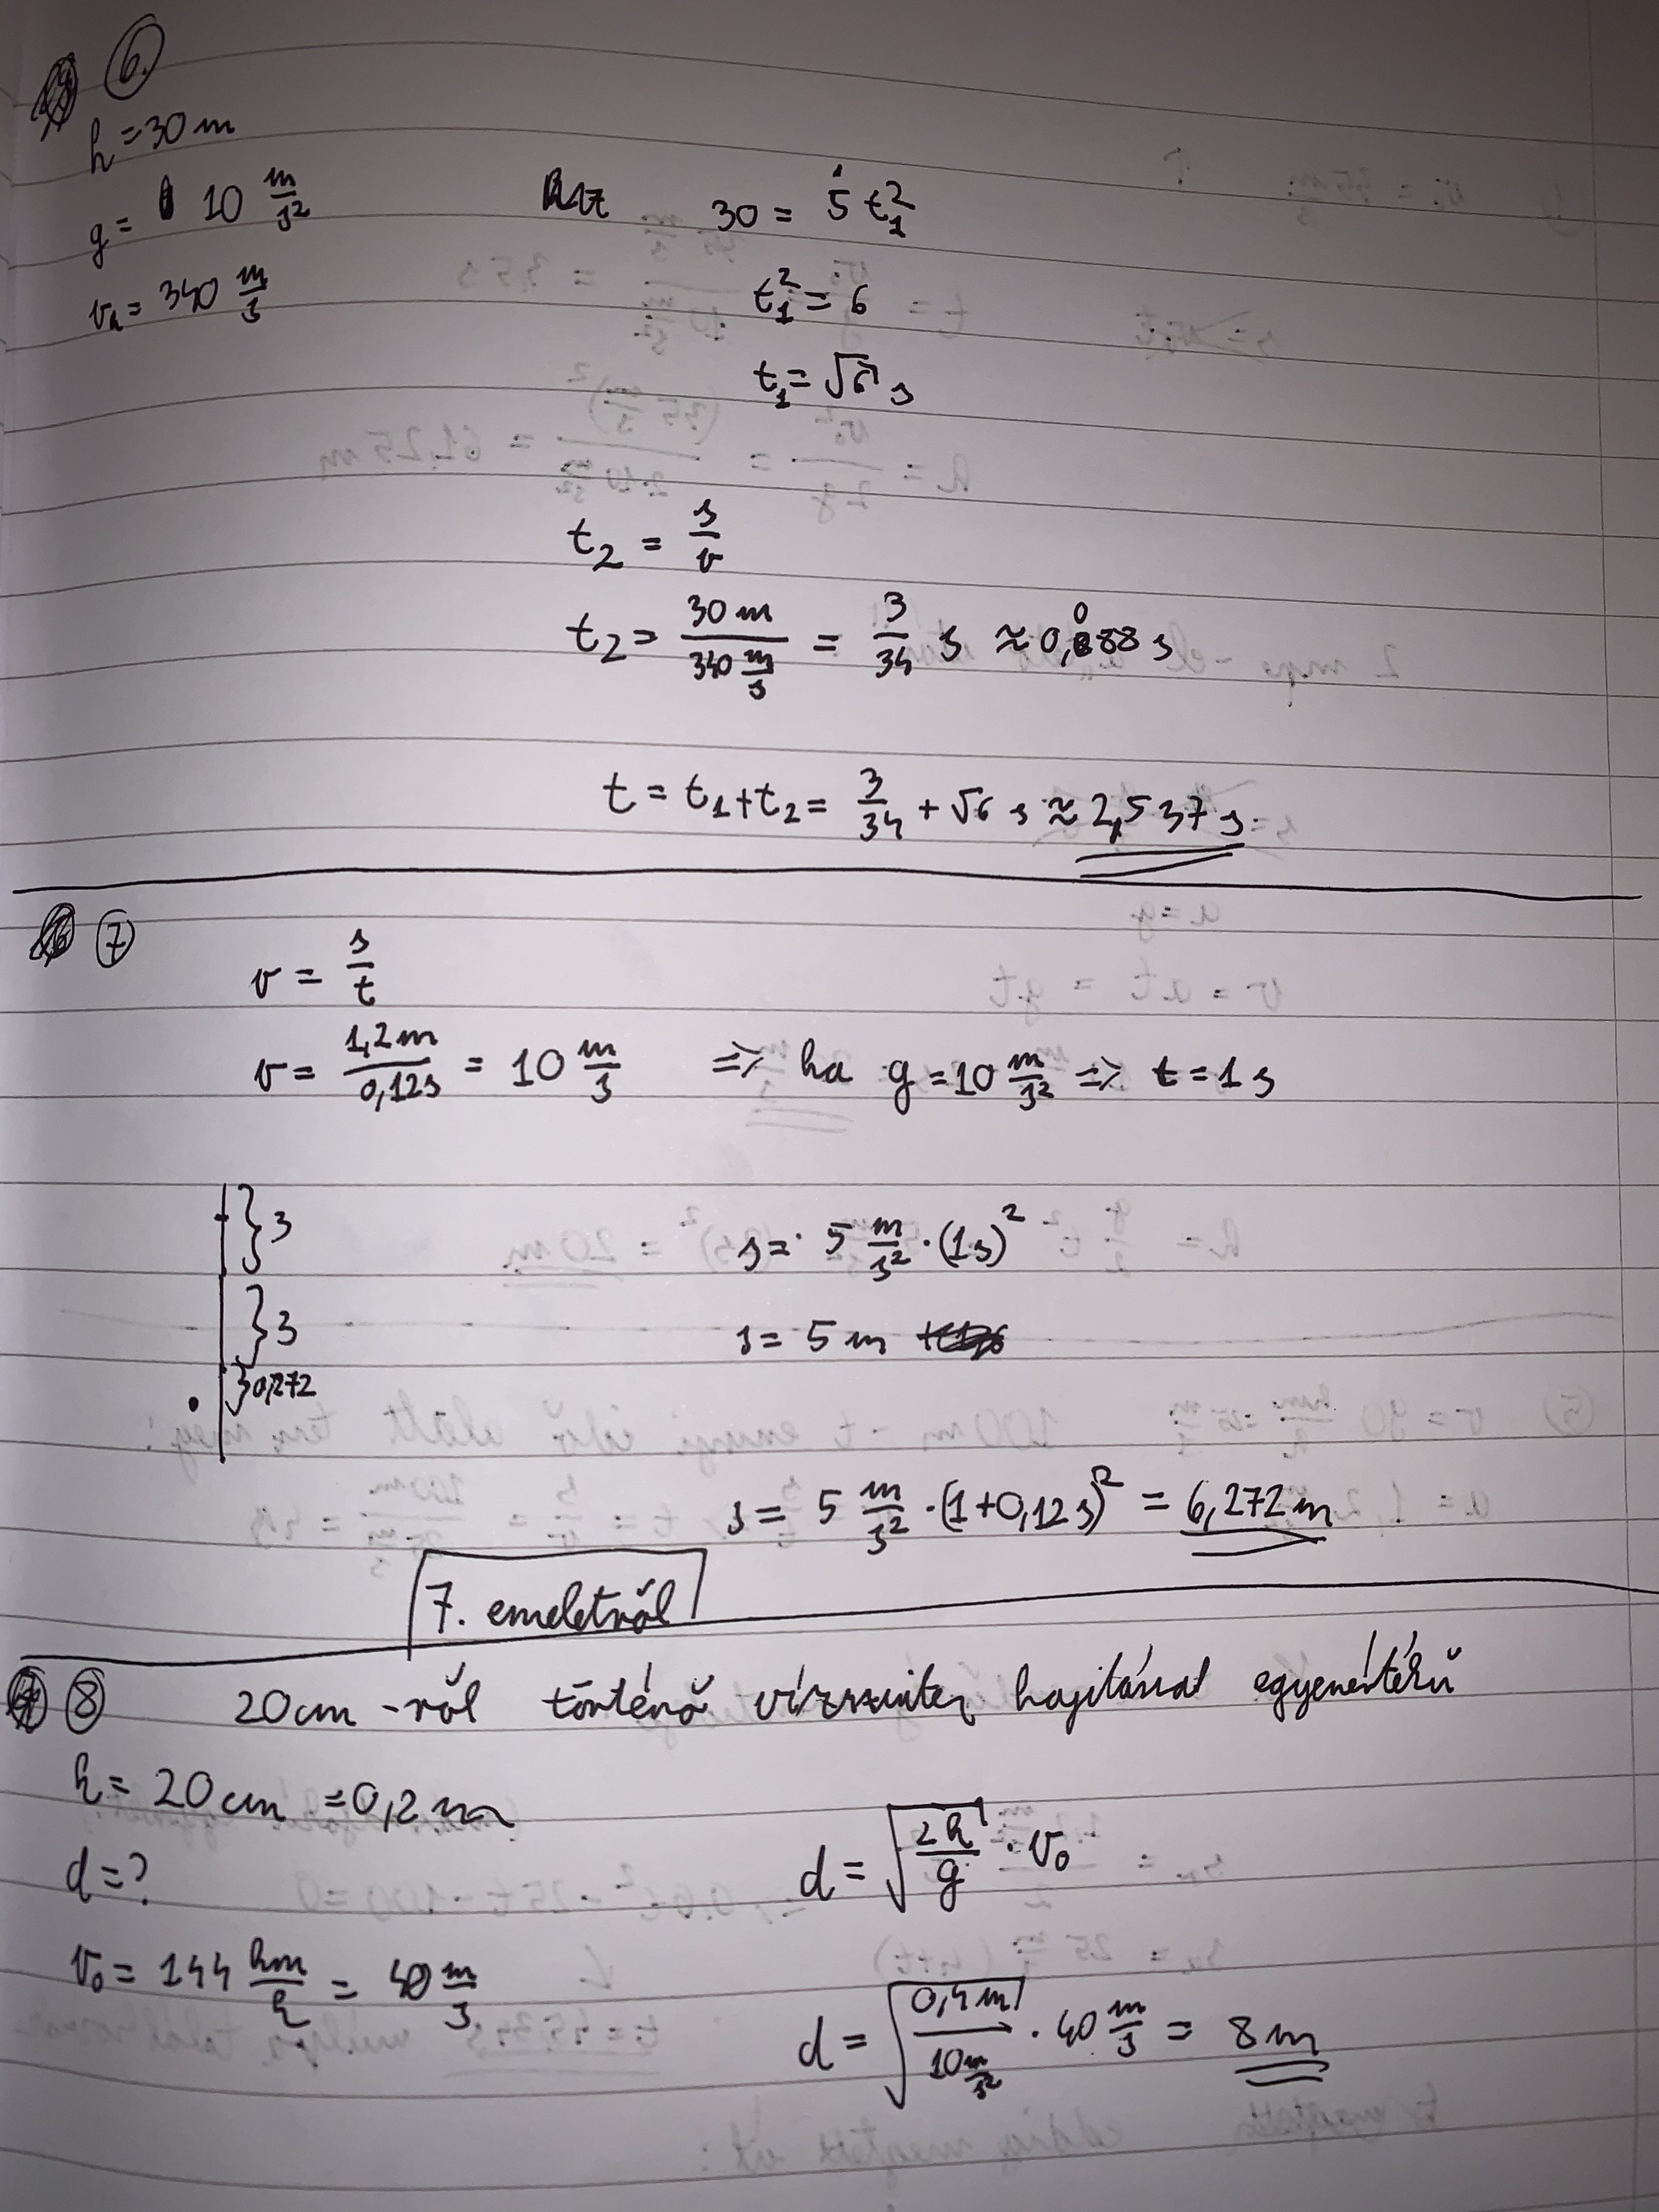 6.
h = 30 m
g = 10 m/s²
vₕ = 340 m/s
30 = 5 t₁²
t₁² = 6
t₁ = √6 s
t₂ = s/v
t₂ = 30 m / 340 m/s = 3/34 s ≈ 0,088 s
t = t₁ + t₂ = 3/34 + √6 s ≈ 2,537 s
7
v = s/t
v = 1,2 m / 0,12 s = 10 m/s ⇒ ha g = 10 m/s² ⇒ t = 1 s
}3
s = 5 m/s² · (1s)²
}3
s = 5 m
}0,272
s = 5 m/s² · (1+0,12 s)² = 6,272 m
7. emeletről
8 20 cm -ről történő vízszintes hajítással egyenértékű
h = 20 cm = 0,2 m
d = ?
d = √(2h/g) · v₀
v₀ = 144 km/h = 40 m/s
d = √(0,4 m / 10 m/s²) · 40 m/s = 8 m